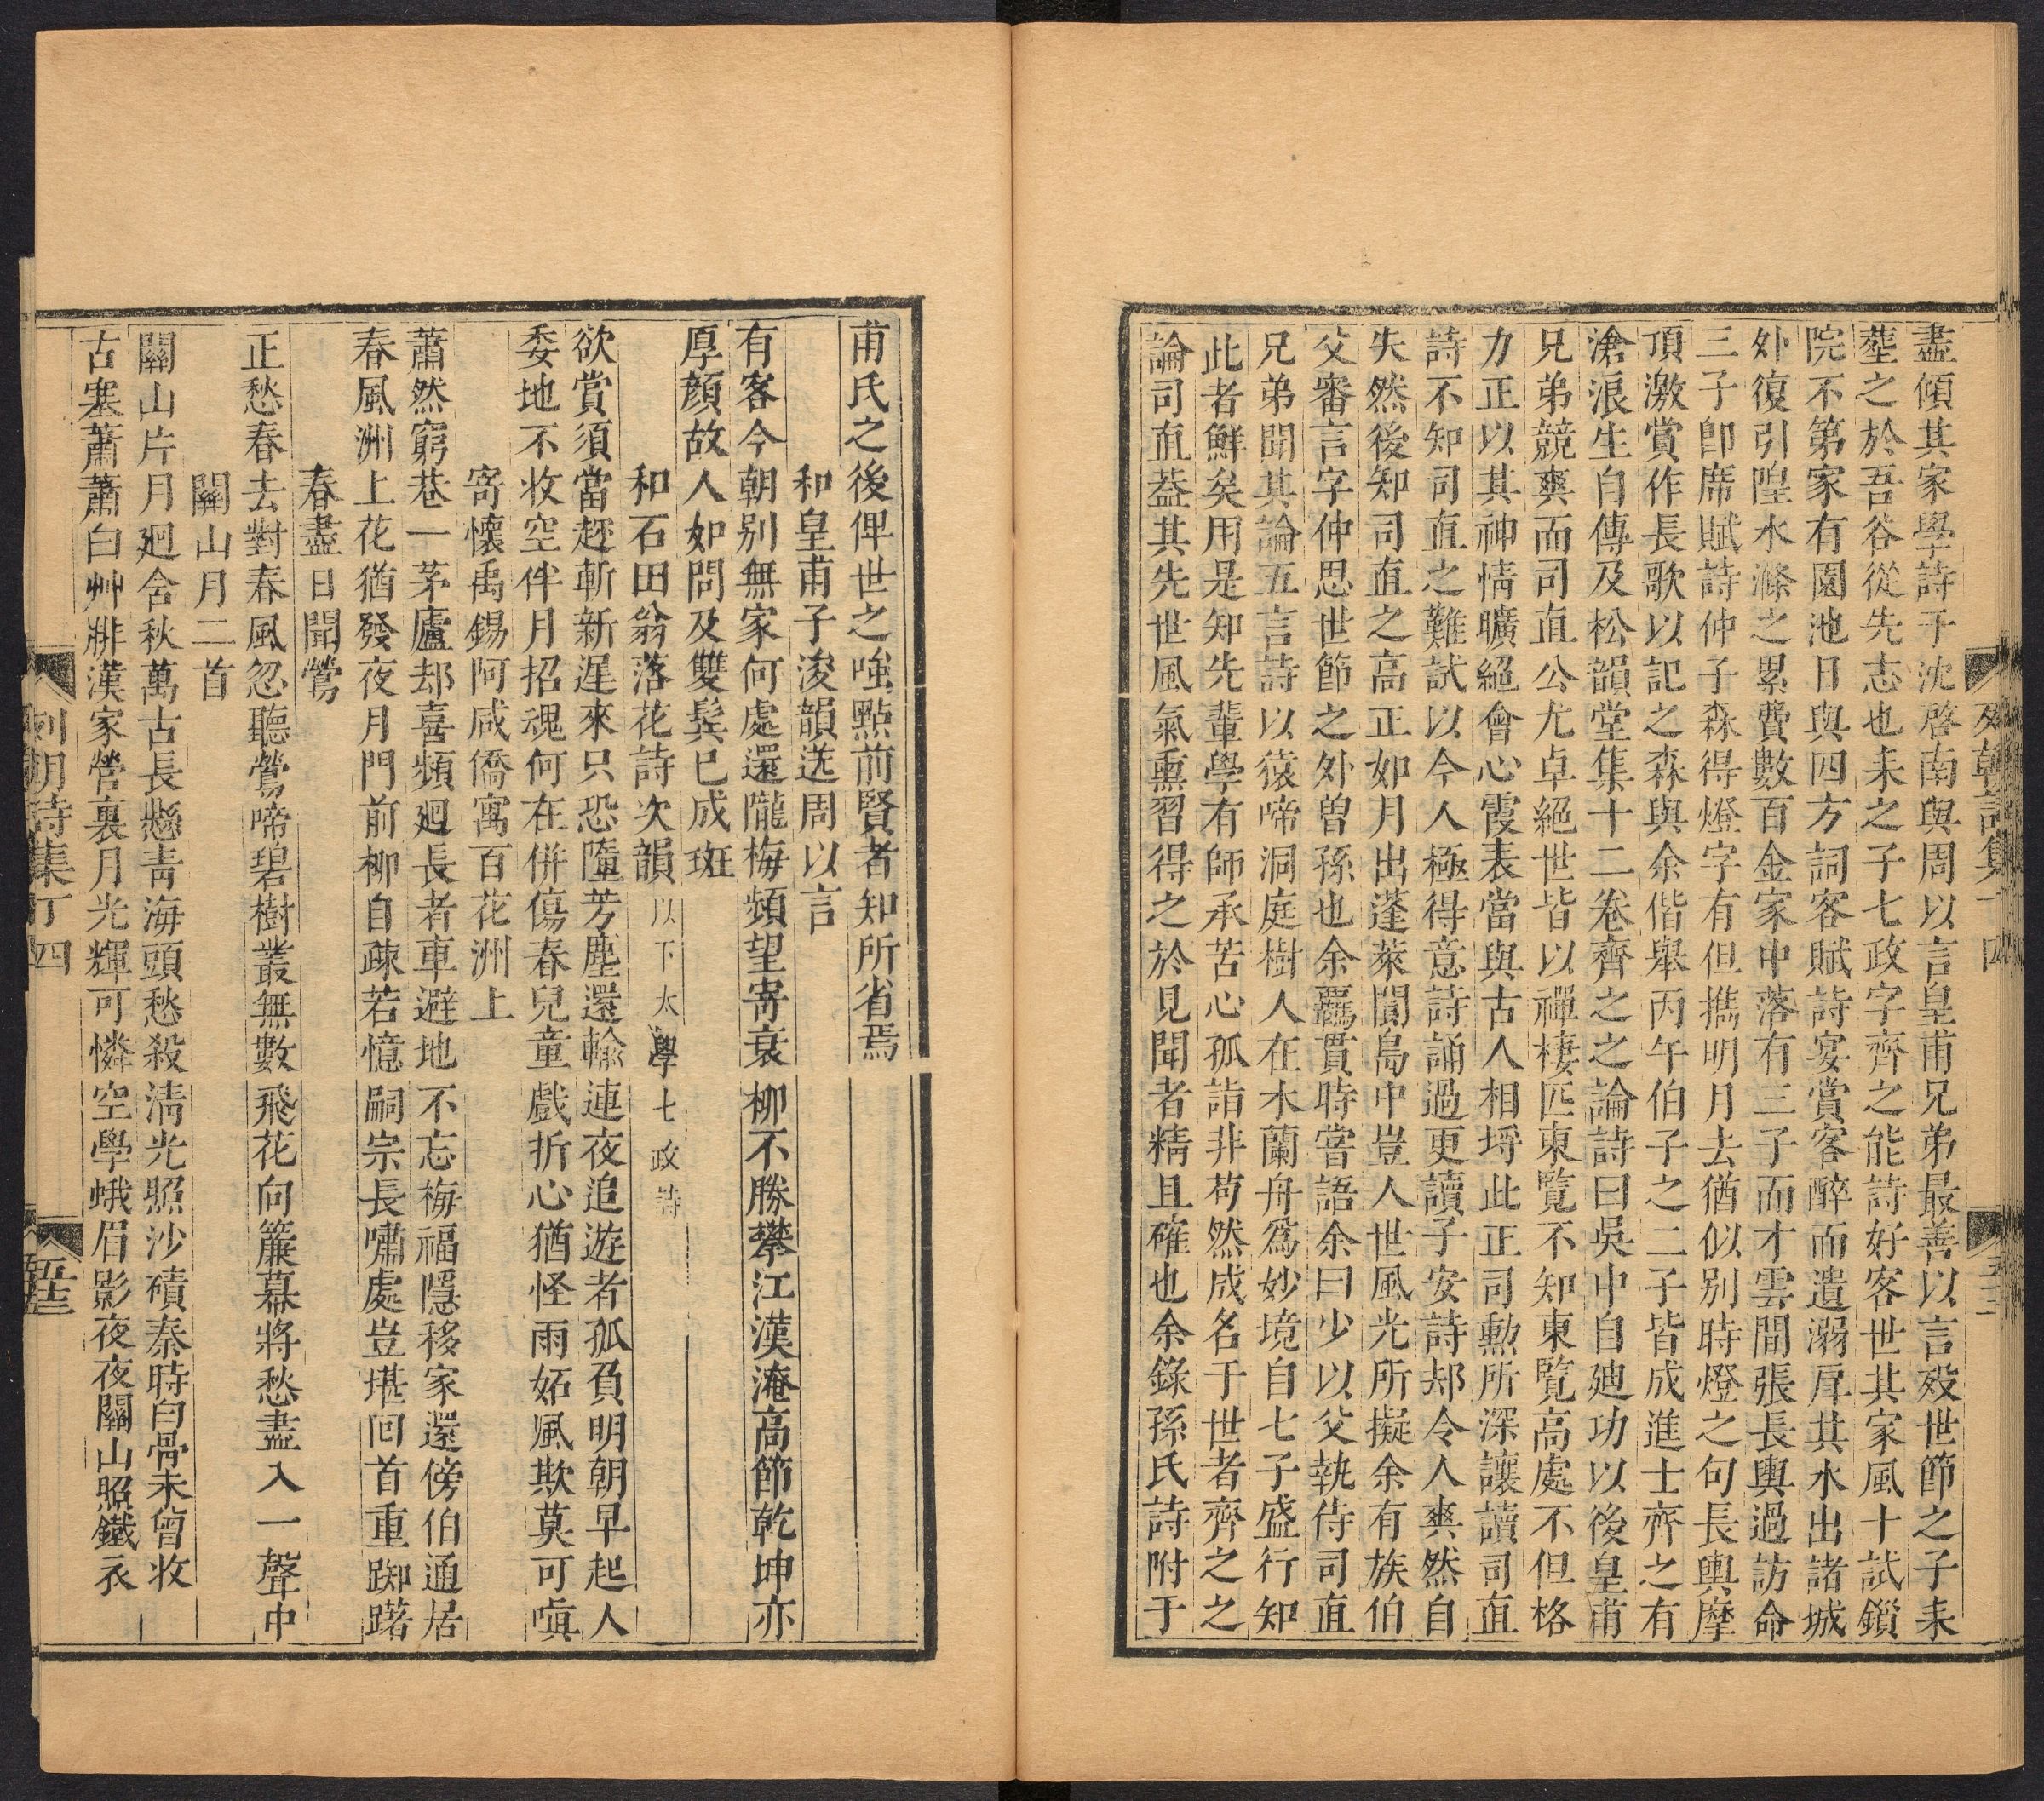 列朝詩集丁四
盡傾其家學詩于沈啓南與周以言皇甫兄弟最善以言歿世節之子耒
塟之於吾谷從先志也耒之子七政字齊之能詩好客世其家風十試鎖
院不第家有園池日與四方詞客賦詩宴賞客醉而遺溺厓其水出諸城
外復引隍水滌之累費數百金家中落有三子而才雲間張長輿過訪命
三子卽席賦詩仲子森得燈字有但攜明月去猶似别時燈之句長輿摩
頂激賞作長歌以記之森與余偕舉丙午伯子之二子皆成進士齊之有
滄浪生自傳及松韻堂集十二卷齊之之論詩曰吳中自廸功以後皇甫
兄弟競爽而司直公尤卓絕世皆以禪棲匹東覽不知東覽高處不但格
力正以其神情曠絕會心霞表當與古人相埒此正司勲所深讓讀司直
詩不知司直之難試以今人極得意詩誦過更讀子安詩却令人爽然自
失然後知司直之高正如月出蓬萊閬島中豈人世風光所擬余有族伯
父審言字仲思世節之外曽孫也余羈貫時嘗語余曰少以父執侍司直
兄弟聞其論五言詩以猿啼洞庭樹人在木蘭舟爲妙境自七子盛行知
此者鮮矣用是知先輩學有師承苦心孤詣非苟然成名于世者齊之之
論司直葢其先世風氣熏習得之於見聞者精且確也余錄孫氏詩附于
甫氏之後俾世之嗤㸃前賢者知所省焉
和皇甫子浚韻送周以言
有客今朝别無家何處還隴梅頻望寄衰柳不勝攀江漢淹高節乾坤亦
厚顔故人如問及雙鬂已成斑
和石田翁落花詩次韻以下太學七政詩
欲賞須當趂斬新遲來只恐隨芳塵還輸連夜追遊者孤負明朝早起人
委地不收空伴月招魂何在併傷春兒童戲折心猶怪雨妬風欺莫可嗔
寄懷禹錫阿咸僑寓百花洲上
蕭然窮巷一茅廬却喜頻廻長者車避地不忘梅福隱移家還傍伯通居
春風洲上花猶發夜月門前柳自疎若憶嗣宗長嘯處豈堪回首重踟躇
春盡日聞鶯
正愁春去對春風忽聽鶯啼碧樹叢無數飛花向簾幕將愁盡入一聲中
關山月二首
關山片月廻含秋萬古長懸靑海頭愁殺淸光照沙磧秦時白骨未曾收
古塞蕭蕭白艸腓漢家營裏月光輝可憐空學蛾眉影夜夜關山照鐵衣
列朝詩集丁四